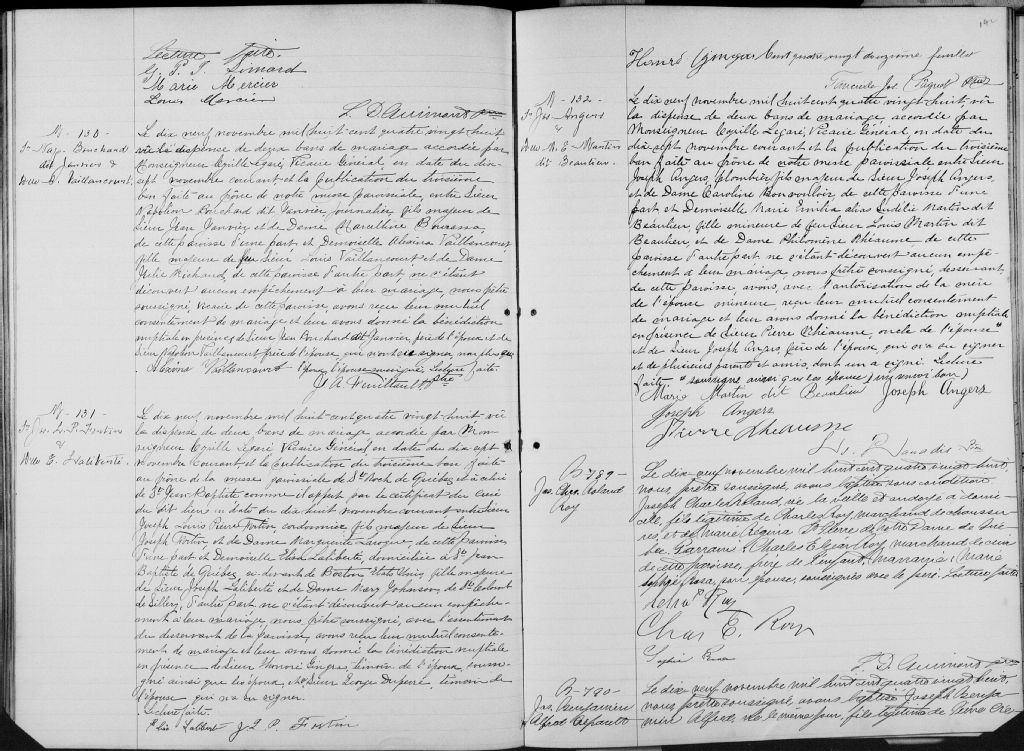 Lecture faite.
G. P. T. Simard
Marie Mercier
Louis Mercier
L. D'Auimond ptre
M - 130
Sr Nap. Bouchard
dit Janvier &
Delle A. Vaillancourt.
Le dix neuf novembre mil huit cent quatre vingt huit
vu la dispense de deux bans de mariage accordée par
Monseigneur Cyrille Légaré, Vicaire Général en date du dix-
sept novembre courant et la publication du troisième
ban faite au prône de notre messe paroissiale, entre Sieur
Napoléon Bouchard dit Janvier, journalier, fils majeur de
Sieur Jean Janvier et de Dame Marcelline Bourassa,
de cette paroisse d'une part et Demoiselle Alexina Vaillancourt,
fille majeure de feu Sieur Louis Vaillancourt et de Dame
Julie Richard, de cette paroisse d'autre part, ne s'étant
découvert aucun empêchement à leur mariage, nous prêtre
soussigné, Vicaire de cette paroisse, avons reçu leur mutuel
consentement de mariage et leur avons donné la bénédiction
nuptiale en présence de Sieur Jean Bouchard dit Janvier, père de l'époux et de
Sieur Napoléon Vaillancourt frère de l'épouse, qui
Alexina Vaillancourt l'épouse soussignée. Lecture faite.
M - 131
Sr Jos. Ls. P. Fortin
&
Delle E. Laliberté.
Le dix neuf novembre mil huit cent quatre vingt huit vu
la dispense de deux bans de mariage accordée par Mon-
seigneur Cyrille Légaré Vicaire Général en date du dix sept
Novembre courant et la publication du troisième ban faite
au prône de la messe paroissiale de St Roch de Québec et à celui
de St Jean Baptiste comme il appert par le certificat du Curé
du dit lieu en date du dix huit novembre courant entre Sieur
Joseph Louis Pierre Fortin cordonnier fils majeur de Sieur
Joseph Fortin et de Dame Marguerite Laroque, de cette paroisse,
d'une part et Demoiselle Eliza Laliberté, domiciliée à St Jean
Baptiste de Québec, ci-devant de Boston Etats Unis, fille majeure
de Sieur Joseph Laliberté et de Dame Mary Johnson, de St Colomb
de Sillery, d'autre part, ne s'étant découvert aucun empêche-
ment à leur mariage, nous, prêtre soussigné, avec l'assentiment
du desservant de la paroisse, avons reçu leur mutuel consente-
ment de mariage et leur avons donné la bénédiction nuptiale
en présence de Sieur Honoré Gingras, témoin de l'époux, sous-
signé ainsi que les époux, et de Sieur George Duperré, témoin de
l'épouse, qui n'a su signer.
Lecture faite.
J. L. P. Fortin
Cent quatre vingt douzième feuillet
M - 132 -
Sr Jos. Angers
&
Delle M. E. Martin
dit Beaulieu.
Le dix neuf novembre mil huit cent quatre vingt huit, vu
la dispense de deux bans de mariage, accordée par
Monseigneur Cyrille Légaré, Vicaire Général en date du
dix sept novembre courant et la publication du troisième
ban faite au prône de notre messe paroissiale entre Sieur
Joseph Angers, plombier, fils majeur de Sieur Joseph Angers,
et de Dame Caroline Bonvouloir, de cette Paroisse d'une
part, et Demoiselle Marie Emélia alias Eudélie Martin dit
Beaulieu, fille mineure de feu Sieur Louis Martin dit
Beaulieu, et de Dame Philomène Rhéaume de cette
Paroisse d'autre part ne s'étant découvert aucun empê-
chement à leur mariage, nous prêtre soussigné, desservant
de cette Paroisse, avons, avec l'autorisation de la mère
de l'épouse mineure reçu leur mutuel consentement
de mariage et leur avons donné la bénédiction nuptiale
en présence de Sieur Pierre Rhéaume, oncle de l'épouse
et de Sieur Joseph Angers, père de l'époux, qui n'a su signer
et de plusieurs parents et amis, dont un a signé. Lecture
faite. soussigné ainsi que les époux
Marie Martin dit Beaulieu Joseph Angers
Joseph Angers
Pierre Rheaume
B - 789 -
Jos. Chas. Roland
Roy
Le dix-neuf novembre mil huit cent quatre vingt huit,
nous, prêtre soussigné, avons baptisé sous condition
Joseph Charles Roland, né la veille et ondoyé à domi-
cile, fils légitime de Charles Roy, marchand de chaussu-
res, et de Marie Régina St Pierre de Notre Dame de Qué-
bec. Parrain, Charles Elzéar Roy, marchand de cuir
de cette paroisse, frère de l'enfant, marraine, Marie
Sophie Rosa, son épouse, soussignés avec le père. Lecture faite
Chas Roy
Chas E. Roy
Sophie Rosa
L. D'Auimond ptre
B - 790 -
Jos. Benjamin
Alfred
Le dix neuf novembre mil huit cent quatre vingt huit,
nous prêtre soussigné, avons baptisé Joseph Benja-
min Alfred, né le même jour, fils légitime de